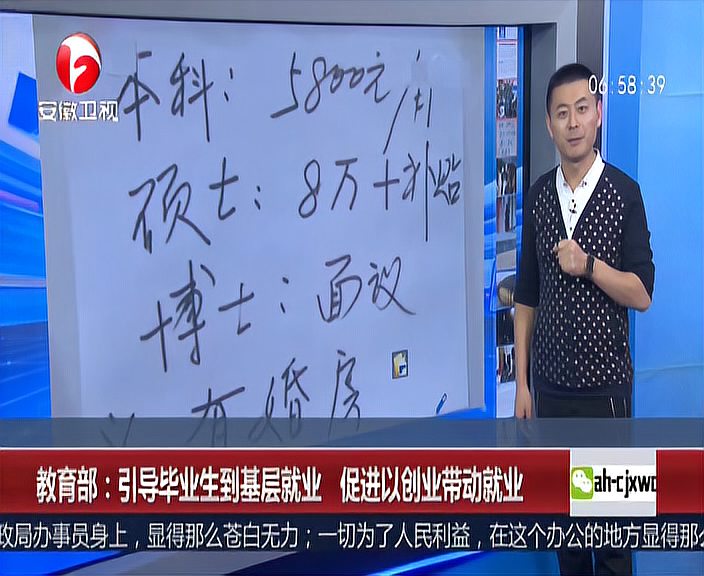 安徽卫视
06:58:39
本科：5800元/月
硕士：8万+补贴
博士：面议
有婚房
教育部：引导毕业生到基层就业 促进以创业带动就业
ah-cjxwc
政局办事员身上，显得那么苍白无力；一切为了人民利益，在这个办公的地方显得那么